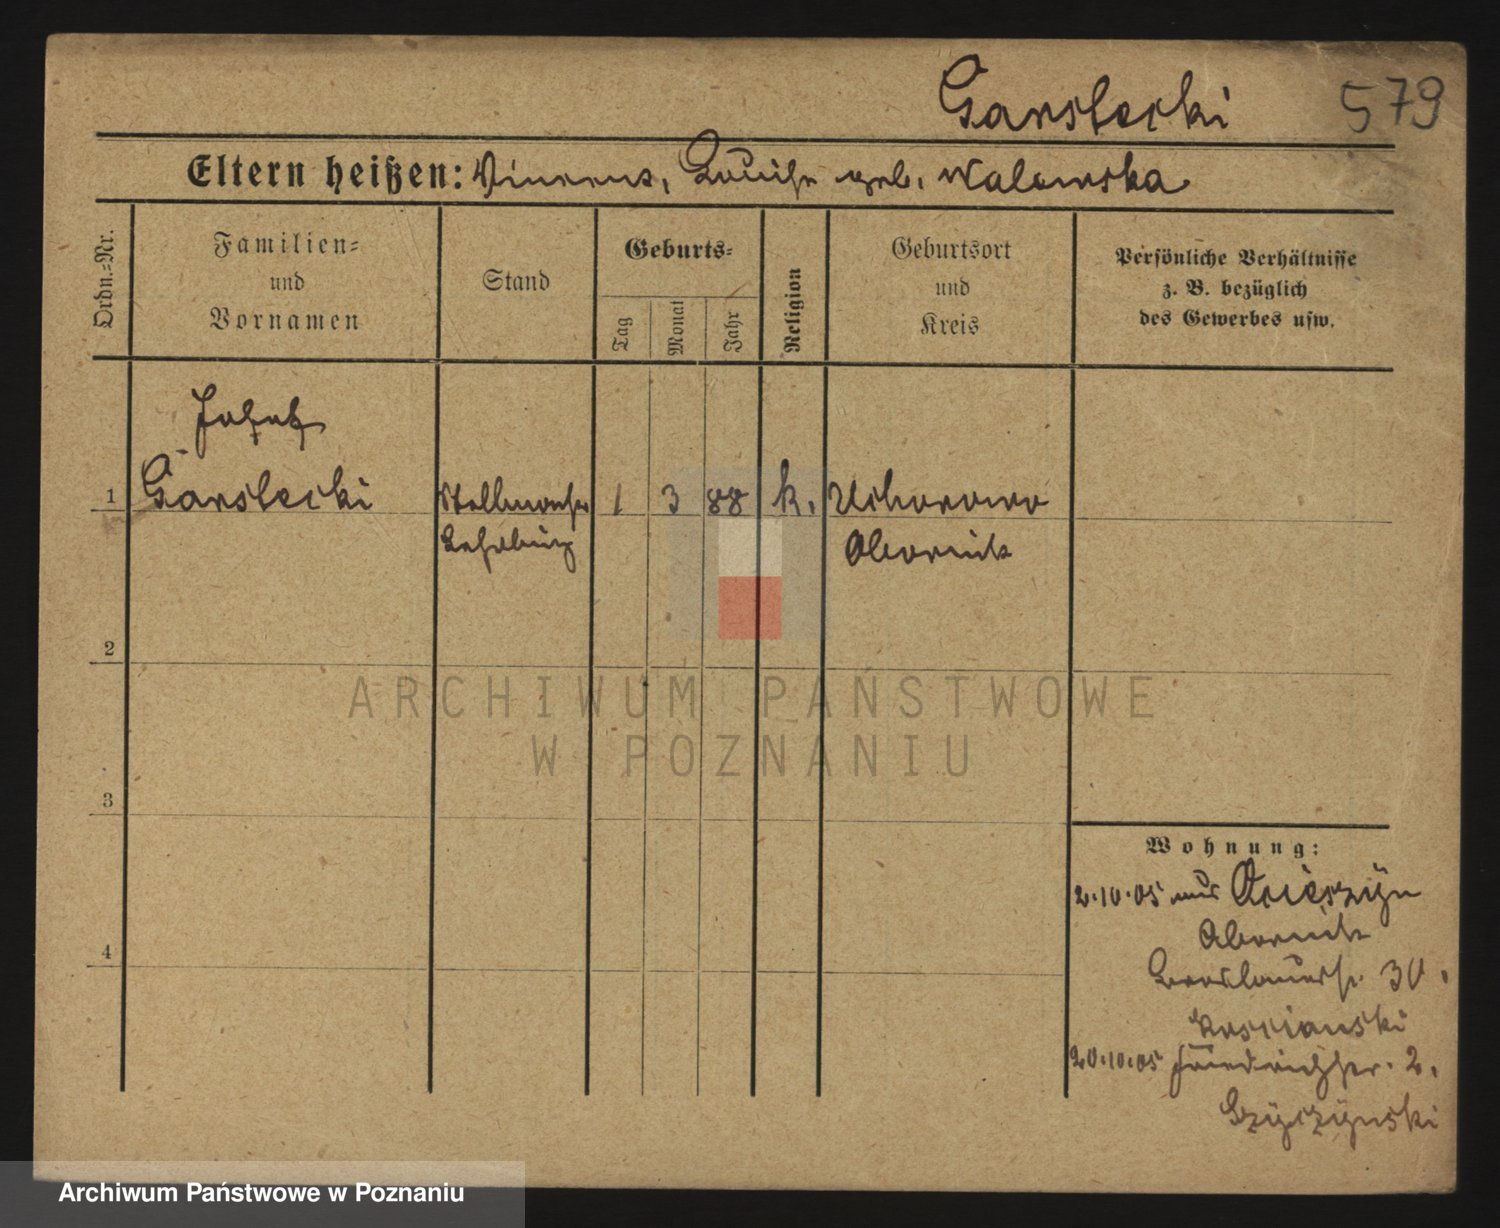 Garstecki 579
Eltern heißen: Vincenz, Louise geb. Walewska
Ordn.=Nr.
Familien=
und
Vornamen
Stand
Geburts=
Tag
Monat
Jahr
Religion
Geburtsort
und
Kreis
Persönliche Verhältnisse
z. B. bezüglich
des Gewerbes usw.
Josef
1 Garstecki Stellmacher 1 3 88 k. Uchorowo
Lehrling Obornik
2
3
4
Wohnung:
2.10.05 aus
Obornik
Breslauerstr. 30.
20.10.05 2.
ARCHIWUM PAŃSTWOWE
W POZNANIU
Archiwum Państwowe w Poznaniu